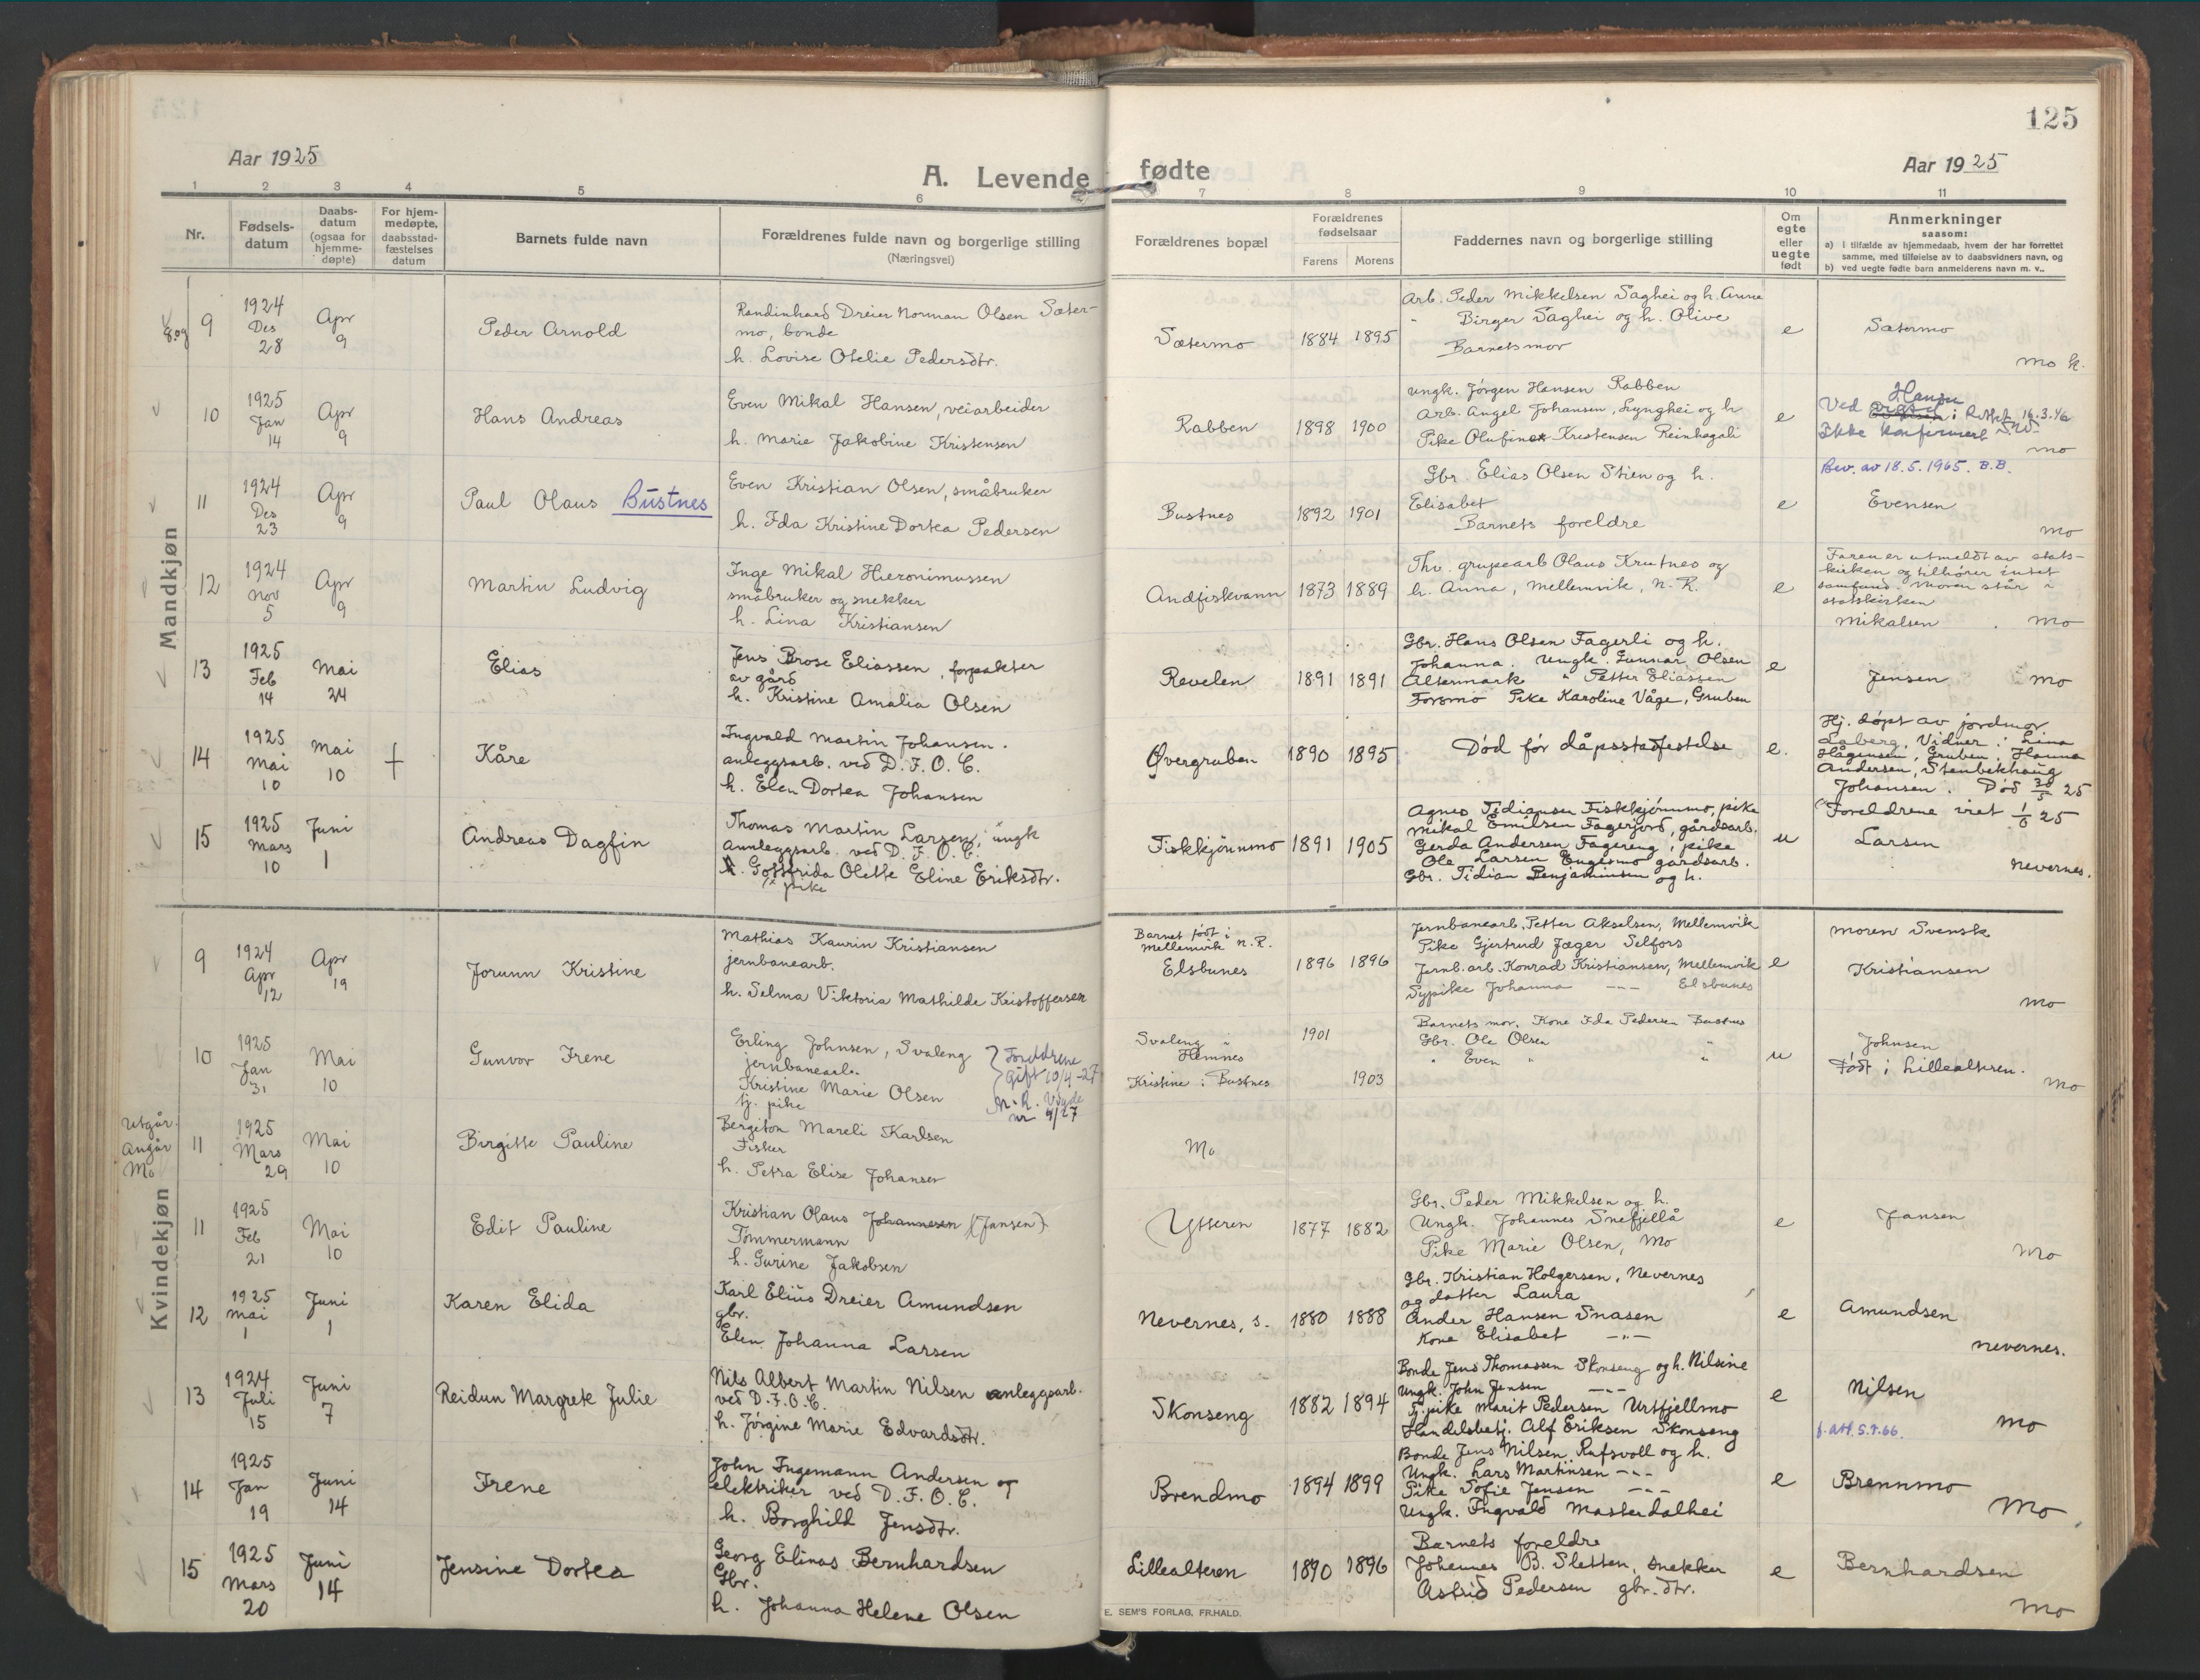 125
Aar 1925
A. Levende fødte
Aar 1925
1 2 3 4 5 6 7 8 9 10 11
Nr.
Fødsels-
datum
Daabs-
datum
(ogsaa for
hjemme-
døpte)
For hjem-
medøpte,
daabsstad-
fæstelses
datum
Barnets fulde navn
Forældrenes fulde navn og borgerlige stilling
(Næringsvei)
Forældrenes bopæl
Forældrenes
fødselsaar
Farens Morens
Faddernes navn og borgerlige stilling
Om
egte
eller
uegte
født
Anmerkninger
saasom:
a) i tilfælde av hjemmedaab, hvem der har forrettet
samme, med tilføielse av to daabsvidners navn, og
b) ved uegte fødte barn anmelderens navn m. v..
Mandkjøn
9
1924
Des
28
Apr
9
Peder Arnold
Randinhard Dreier Norman Olsen Sæter-
mo, bonde
h. Lovise Otelie Pedersdtr.
Sætermo
1884 1895
Arb. Peder Mikkelsen Saghei og h. Anne
" Birger Saghei og h. Olive
Barnets mor
e
Sætermo
Mo k.
10
1925
Jan
14
Apr
9
Hans Andreas
Even Mikal Hansen, veiarbeider
h. Marie Jakobine Kristensen
Rabben
1898 1900
Ungk. Jørgen Hansen Rabben
Arb. Angel Johansen, Lynghei og h
Pike Olufine Kristensen Reinhagali
e
Hansen
Ved
16.3.46
Ikke konfirmert
Mo
11
1924
Des
23
Apr
9
Paul Olaus Bustnes
Even Kristian Olsen, småbruker
h. Ida Kristine Dortea Pedersen
Bustnes
1892 1901
Gbr. Elias Olsen Stien og h.
Elisabet
Barnets foreldre
e
Bev. av 18.5.1965. B.B.
Evensen
Mo
12
1924
Nov
5
Apr
9
Martin Ludvig
Inge Mikal Hieronimussen
småbruker og snekker
h. Lina Kristiansen
Andfiskvann
1873 1889
Thv. grupearb Olaus Krutnes og
h. Anna, Mellemvik, N. R.
e
Faren er utmeldt av stats-
kirken og tilhører intet
samfund. Moren står i
statskirken
Mikalsen . Mo
13
1925
Feb
14
Mai
24
Elias
Jens Brose Eliassen, forpakter
av gård
h. Kristine Amalia Olsen
Revelen
1891 1891
Gbr. Hans Olsen Fagerli og h.
Johanna. Ungk. Gunnar Olsen
Altermark " Petter Eliassen
Forsmo Pike Karoline Våge, Gruben
e
Jensen Mo
14
1925
Mai
10
Mai
10
+
Kåre
Ingvald Martin Johansen.
anleggsarb. ved D. F. O. C.
h. Elen Dortea Johansen
Øvergruben
1890 1895
Død før dåpsstadfestelse
e.
Hj. døpt av jordmor
Laberg, Vidner: Lina
Hågensen, Gruben, Hanna
Andersen, Stenbekhaug
Johansen. Død 30/5 25
15
1925
Mars
10
Juni
1
Andreas Dagfin
Thomas Martin Larsen, ungk
annleggsarb. ved D. F. O. C.
h. Gottfrida Olette Eline Eriksdtr.
pike
Fiskkjønnmo
1891 1905
Agnes Tidiansen Fiskkjønnmo, pike
Mikal Emilsen Fagerjord, gårdsarb.
Gerda Andersen Fagereng, pike
Ole Larsen Engesmo gårdsarb.
Gbr. Tidian Benjaminsen og h.
u
Foreldrene viet 1/6 25
Larsen
Nevernes.
Kvindekjøn
9
1924
Apr
12
Apr
19
Jorunn Kristine
Mathias Kaurin Kristiansen
jernbanearb.
h. Selma Viktoria Mathilde Kristoffersen
Barnet født i
Mellemvik N. R.
Elsbunes
1896 1896
Jernbanearb. Petter Akselsen, Mellemvik
Pike Gjertrud Jæger Selfors
Jernb.arb. Konrad Kristiansen, Mellemvik
Sypike Johanna —"— Elsbunes
e
Moren Svensk
Kristiansen
Mo
10
1925
Jan
31
Mai
10
Gunvor Irene
Erling Johnsen, Svaleng
jernbanearb.
Kristine Marie Olsen
tj. pike
Foreldrene
gift 10/4-27
N. R. Viede
nr 4/27
Svaleng i
Hemnes
Kristine: Bustnes
1901
1903
Barnets mor. Kone Ida Pedersen Bustnes
Gbr. Ole Olsen "
" Even " "
u
Johnsen
Født i Lillealteren.
Mo
Utgår.
Angår
Mo
11
1925
Mars
29
Mai
10
Birgitte Pauline
Bergiton Mareli Karlsen
Fisker
h. Petra Elise Johansen
Mo
11
1925
Feb
21
Mai
10
Edit Pauline
Kristian Olaus Johannesen (Jansen)
Tømmermann
h. Gurine Jakobsen
Ytteren
1877 1882
Gbr. Peder Mikkelsen og h.
Ungk. Johannes Snefjellå
Pike Marie Olsen, Mo
e
Jansen
Mo
12
1925
Mai
1
Juni
1
Karen Elida
Karl Elius Dreier Amundsen
gbr.
Elen Johanna Larsen
Nevernes, s.
1880 1888
Gbr. Kristian Holgersen, Nevernes
og datter Laura
Ander Hansen Snasen
Kone Elisabet —"—
e
Amundsen
Nevernes.
13
1924
Juli
15
Juni
7
Reidun Margrete Julie
Nils Albert Martin Nilsen anleggsarb.
ved D. F. O. C.
h. Jørgine Marie Edvardsdtr.
Skonseng
1882 1894
Bonde Jens Thomassen Skonseng og h. Nilsine
Ungk. John Jensen —"—
Tj.pike Marit Pedersen Urtfjellmo
Handelsbetj. Alf Eriksen Skonseng
e
Nilsen
Mo
f. att. 5.9.66.
14
1925
Jan
19
Juni
14
Irene
John Ingemann Andersen og
elektriker ved D. F. O. C.
h. Borghild Jensdtr.
Brendmo
1894 1899
Bonde Jens Nilsen, Rufsvoll og h.
Ungk. Lars Martinsen —"—
Pike Sofie Jensen —"—
Ungk. Ingvald Masterdalhei
e
Brennmo
Mo
15
1925
Mars
20
Juni
14
Jensine Dortea
Georg Elinas Bernhardsen
Gbr.
h. Johanna Helene Olsen
Lillealteren
1890 1896
Barnets foreldre
Johannes B. Sletten, snekker
Astrid Pedersen gbr. dtr.
e
Bernhardsen
Mo
E. SEM'S FORLAG, FR.HALD.